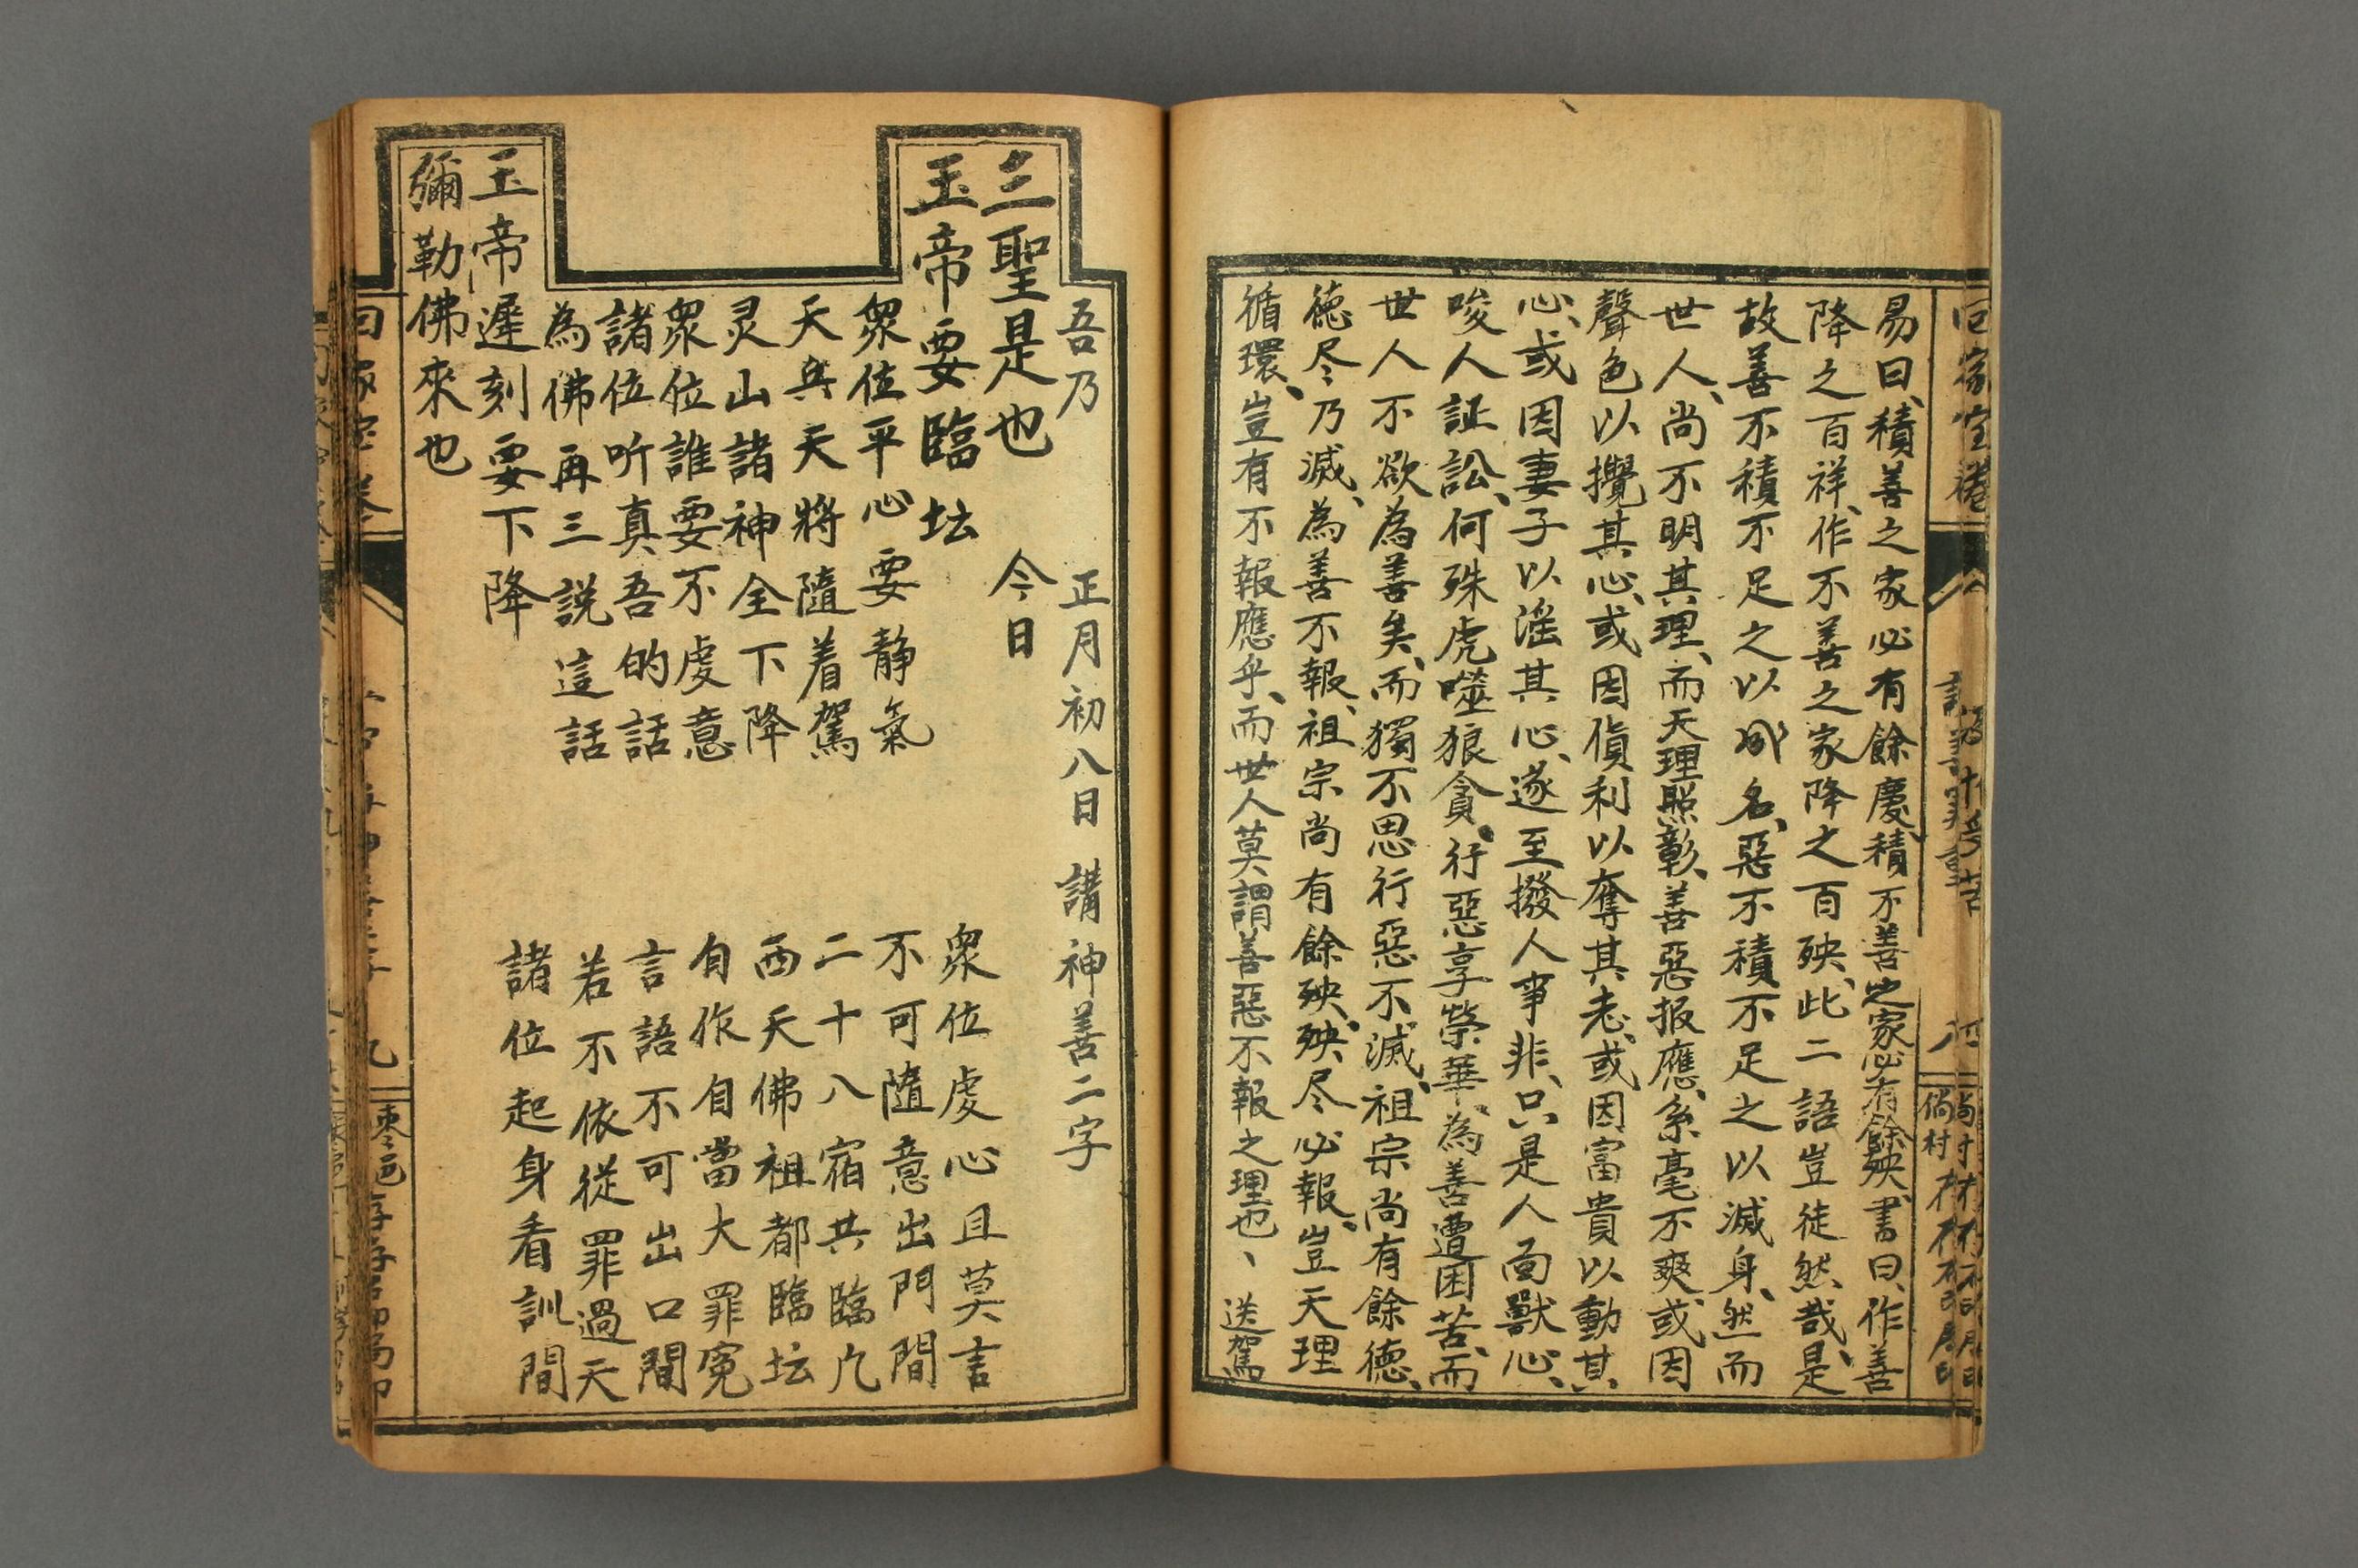 易曰、積善之家必有餘慶、積不善之家必有餘殃、書曰、作善
降之百祥、作不善之家降之百殃、此二語豈徒然哉、是
故善不積不足之以成名、惡不積不足之以滅身、然而
世人、尚不明其理、而天理照彰、善惡报應、系毫不爽、或因
聲色以攪其心、或因貨利以奪其志、或因富貴以動其
心、或因妻子以滛其心、遂至撥人爭非、只是人面獸心、
唆人証訟、何殊虎噬狼貪、行惡享榮華、為善遭困苦、而
世人不欲為善矣、而獨不思行惡不滅、祖宗尚有餘德、
德尽乃滅、為善不報、祖宗尚有餘殃、殃尽必報、豈天理
循環、豈有不報應乎、而世人莫謂善惡不報之理也、送駕
吾乃 正月初八日 講神善二字
三聖是也 今日
玉帝要臨坛
眾位虔心且莫言
眾位平心要静氣 不可隨意出門間
天兵天將隨着駕 二十八宿共臨凢
灵山諸神全下降 西天佛祖都臨坛
眾位誰要不虔意 自作自當大罪寃
諸位听真吾的話 言語不可出口間
為佛再三説這話 若不依從罪過天
玉帝遲刻要下降 諸位起身看訓間
彌勒佛來也